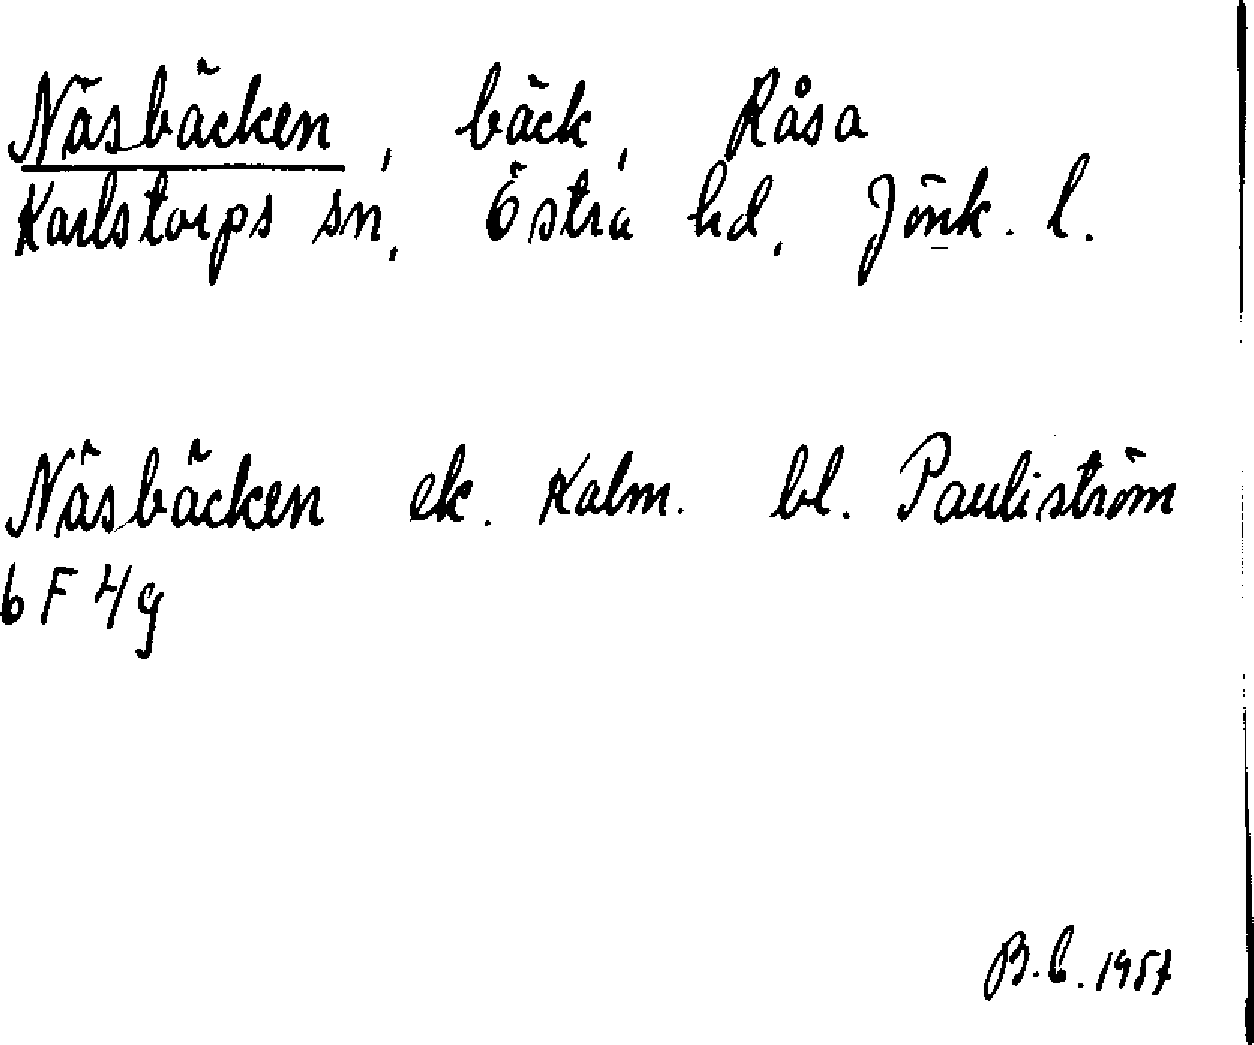 Näsbäcken, bäck, Råsa
Karlstorps sn, Östra hd, Jönk. l.
Näsbäcken ek. Kalm. bl. Pauliström
6 F 4 g
B.C. 1957